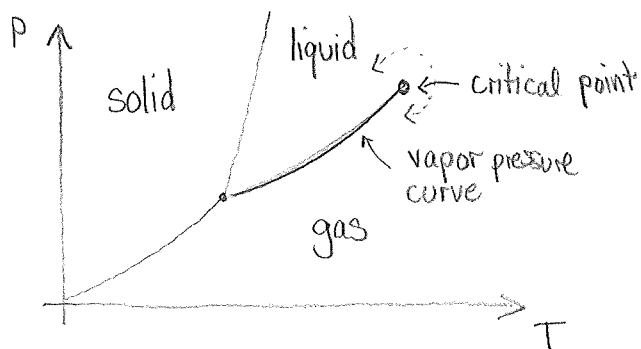 P
liquid
solid
critical point
vapor pressure
curve
gas
T